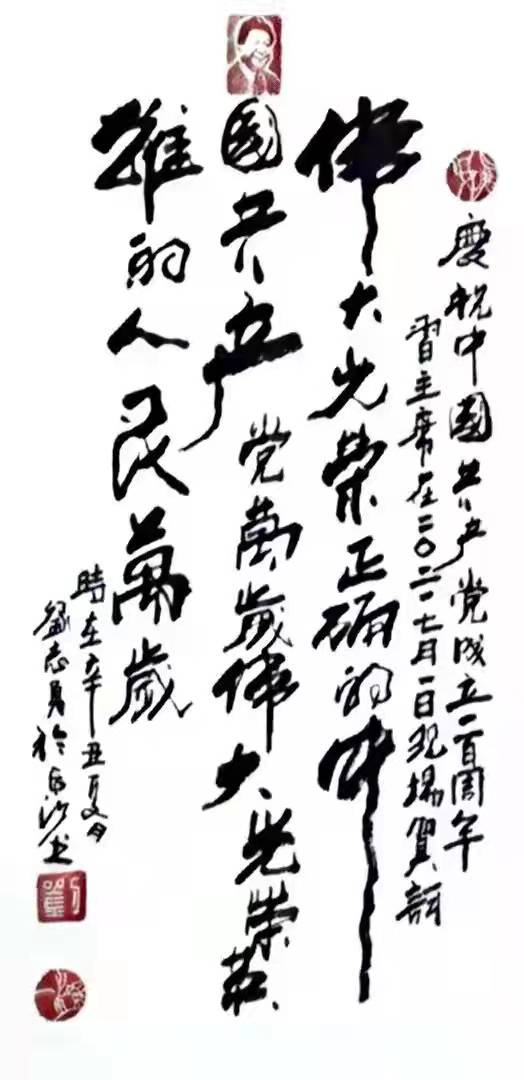 慶祝中國共产党成立一百周年
習主席在二〇二一七月一日现場賀詞
伟大光荣正确的中
國共产党萬歲伟大光荣英
雄的人民萬歲
時在辛丑夏月
劉志勇於長沙书